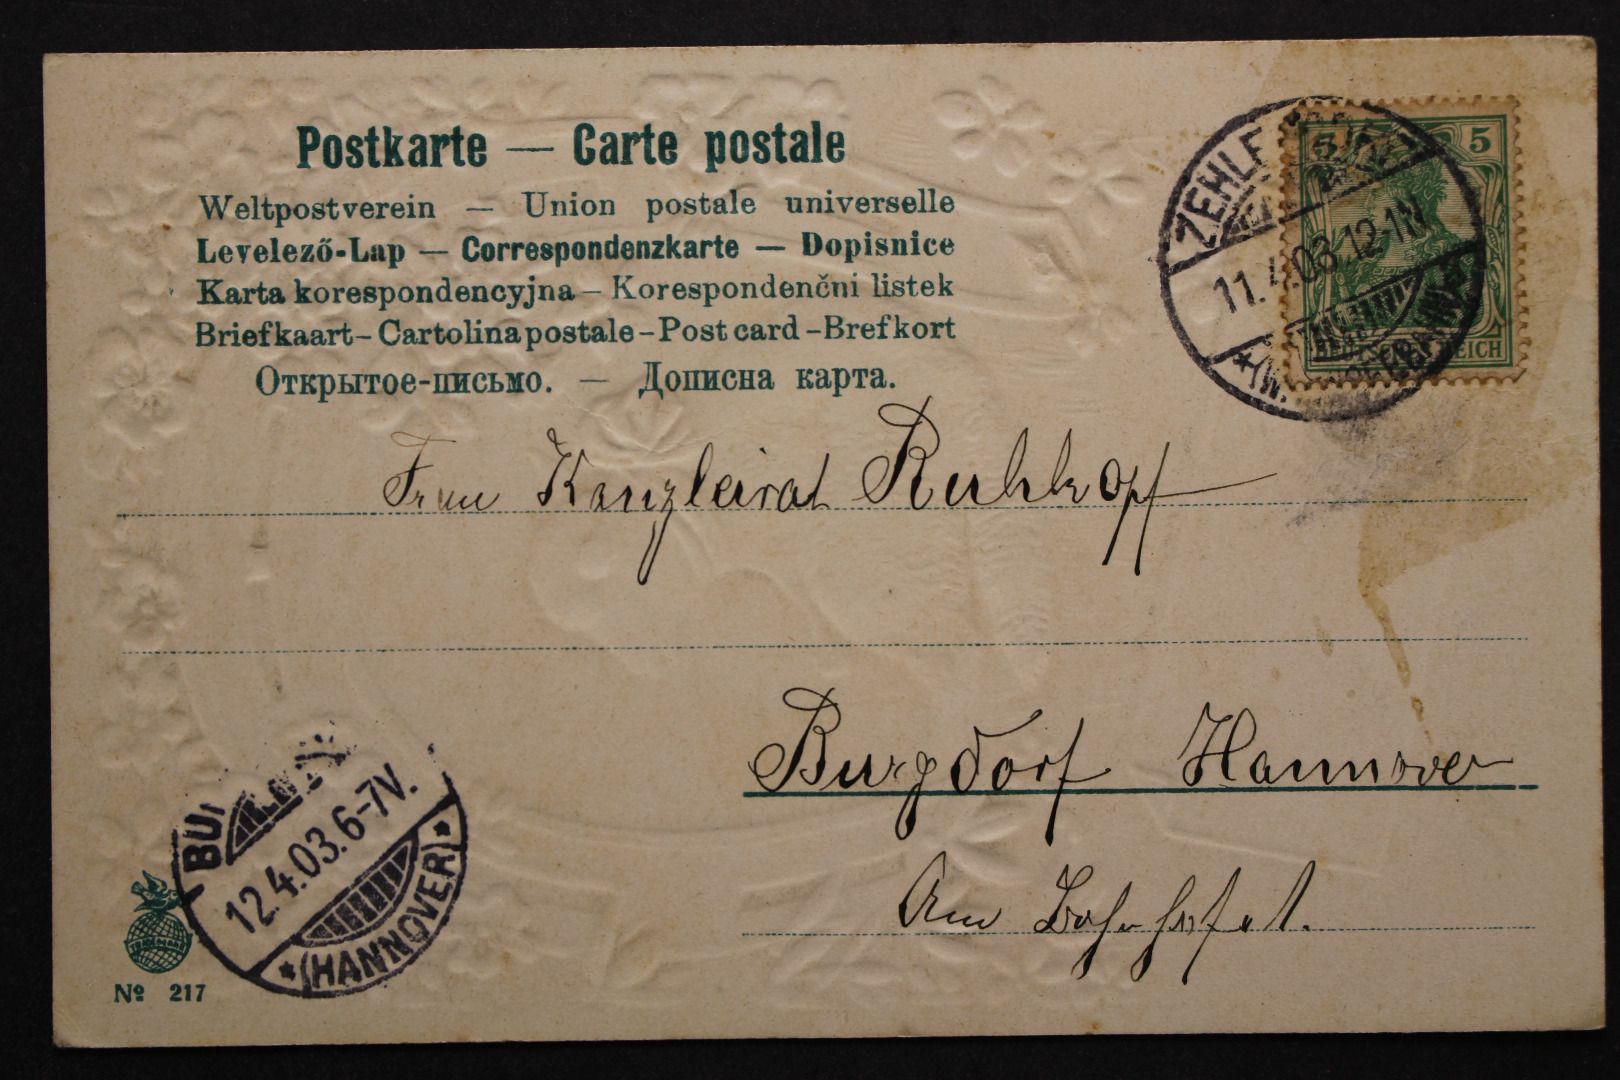 Postkarte — Carte postale
Weltpostverein — Union postale universelle
Levelező-Lap — Correspondenzkarte — Dopisnice
Karta korespondencyjna – Korespondenčni listek
Briefkaart – Cartolina postale – Post card – Brefkort
Открытое-письмо. — Дописна карта.
5 5
DEUTSCHES REICH
ZEHLENDORF
11.4.03.12-1N
Frau Kanzleirat Ruhkopf
Burgdorf Hannover
Am Bahnhof
BURGDORF
12.4.03.6-7V.
*(HANNOVER)*
TRADE MARK
No 217